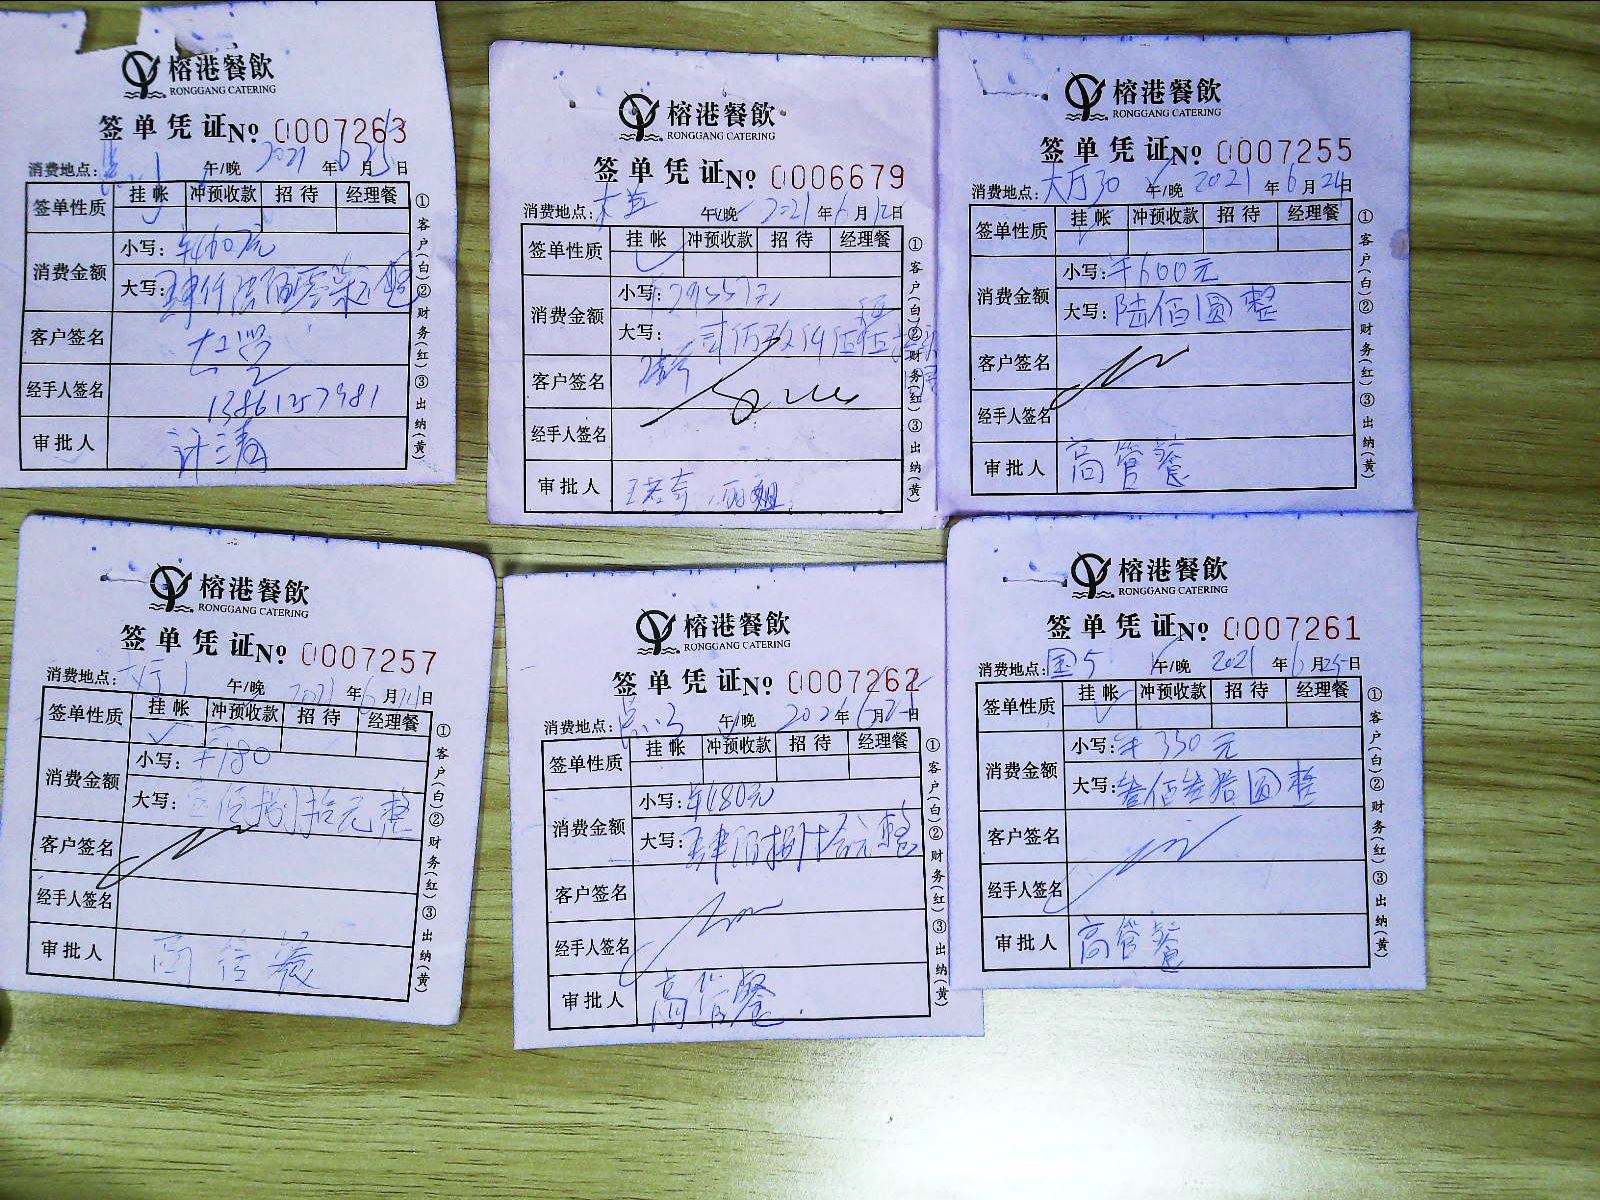 榕港餐飲
RONGGANG CATERING
签单凭证 No 0007263
消费地点: 午/晚 2021年6月25日
签单性质 挂帐 冲预收款 招待 经理餐
消费金额 小写:
大写:
客户签名
经手人签名
审批人
①客户(白)②财务(红)③出纳(黄)
榕港餐飲
RONGGANG CATERING
签单凭证 No 0006679
消费地点: 午/晚 2021年6月12日
签单性质 挂帐 冲预收款 招待 经理餐
消费金额 小写:
大写:
客户签名
经手人签名
审批人
①客户(白)②财务(红)③出纳(黄)
榕港餐飲
RONGGANG CATERING
签单凭证 No 0007255
消费地点:大厅30 午/晚 2021年6月24日
签单性质 挂帐 冲预收款 招待 经理餐
消费金额 小写:¥600元
大写:陆佰圆整
客户签名
经手人签名
审批人 高管餐
①客户(白)②财务(红)③出纳(黄)
榕港餐飲
RONGGANG CATERING
签单凭证 No 0007257
消费地点: 午/晚 2021年6月 日
签单性质 挂帐 冲预收款 招待 经理餐
消费金额 小写:¥180
大写:壹佰捌拾元整
客户签名
经手人签名
审批人
①客户(白)②财务(红)③出纳(黄)
榕港餐飲
RONGGANG CATERING
签单凭证 No 0007262
消费地点: 午/晚 年6月 日
签单性质 挂帐 冲预收款 招待 经理餐
消费金额 小写:¥480元
大写:肆佰捌拾元整
客户签名
经手人签名
审批人 高管餐
①客户(白)②财务(红)③出纳(黄)
榕港餐飲
RONGGANG CATERING
签单凭证 No 0007261
消费地点:国5 午/晚 2021年6月25日
签单性质 挂帐 冲预收款 招待 经理餐
消费金额 小写:¥330元
大写:叁佰叁拾圆整
客户签名
经手人签名
审批人 高管餐
①客户(白)②财务(红)③出纳(黄)